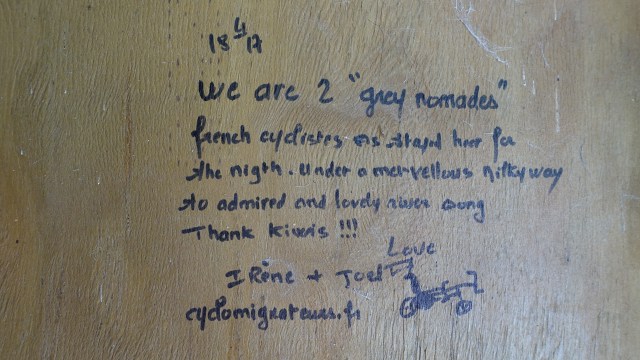 18 4 17
we are 2 "grey nomades"
french cyclistes stayed heer for
the nigth. under a mervellous milkyway
to admired and lovely river song
Thank Kiwis !!!
Love
IRène + Joel
cyclomigrateurs.fr